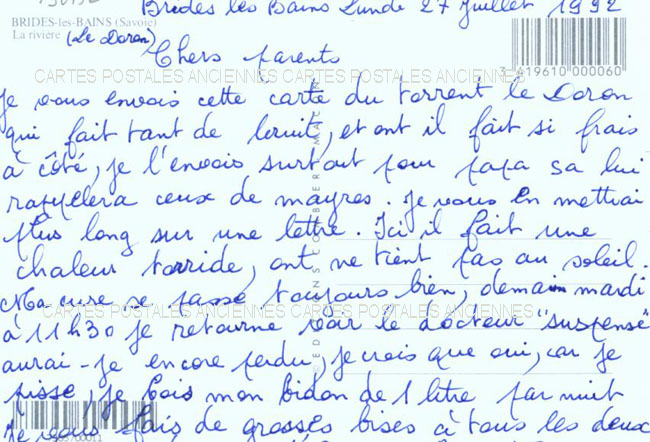 Brides les Bains Lundi 27 Juillet 1992
BRIDES-les-BAINS (Savoie)
La rivière (Le Doron)
Chers parents
3 419610 000060
CARTES POSTALES ANCIENNES CARTES POSTALES ANCIENNES
je vous envois cette carte du torrent le Doron
qui fait tant de bruit, et ont il fait si frais
à côté, je l'envois surtout pour papa sa lui
rappellera ceux de mayres. je vous en mettrai
plus long sur une lettre. Ici il fait une
chaleur torride, ont ne tient pas au soleil.
Ma cure se passe toujours bien, demain mardi
CARTES POSTALES ANCIENNES CARTES POSTALES ANCIENNES
à 11h30 je retourne voir le docteur "suspense"
aurai-je encore perdu, je crois que oui, car je
pisse, je bois mon bidon de 1 litre par nuit
je vous fais de grosses bises à tous les deux